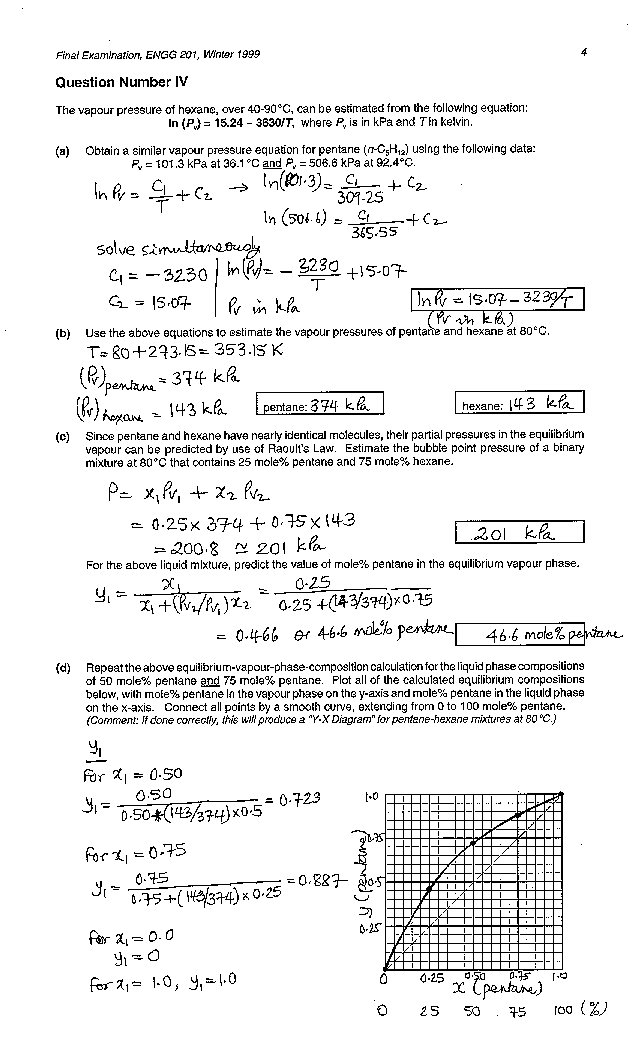 Final Examination, ENGG 201, Winter 1999 4
Question Number IV
The vapour pressure of hexane, over 40-90°C, can be estimated from the following equation:
ln (Pᵥ) = 15.24 - 3630/T, where Pᵥ is in kPa and T in kelvin.
(a) Obtain a similar vapour pressure equation for pentane (n-C₅H₁₂) using the following data:
Pᵥ = 101.3 kPa at 36.1°C and Pᵥ = 506.6 kPa at 92.4°C.
ln Pv = C₁/T + C₂ → ln(101.3) = C₁/309.25 + C₂
ln (506.6) = C₁/365.55 + C₂
solve simultaneously
C₁ = -3230 ln(Pv) = - 3230/T + 15.07
C₂ = 15.07 Pv in kPa
ln Pv = 15.07 - 3230/T
(Pv in kPa)
(b) Use the above equations to estimate the vapour pressures of pentane and hexane at 80°C.
T = 80 + 273.15 = 353.15 K
(Pv)pentane = 374 kPa
(Pv)hexane = 143 kPa pentane: 374 kPa hexane: 143 kPa
(c) Since pentane and hexane have nearly identical molecules, their partial pressures in the equilibrium
vapour can be predicted by use of Raoult's Law. Estimate the bubble point pressure of a binary
mixture at 80°C that contains 25 mole% pentane and 75 mole% hexane.
P = x₁Pv₁ + x₂Pv₂
= 0.25 x 374 + 0.75 x 143
= 200.8 ≃ 201 kPa 201 kPa
For the above liquid mixture, predict the value of mole% pentane in the equilibrium vapour phase.
y₁ = x₁/(x₁ + (Pv₂/Pv₁)x₂) = 0.25/(0.25 + (143/374) x 0.75)
= 0.466 or 46.6 mole% pentane 46.6 mole% pentane
(d) Repeat the above equilibrium-vapour-phase-composition calculation for the liquid phase compositions
of 50 mole% pentane and 75 mole% pentane. Plot all of the calculated equilibrium compositions
below, with mole% pentane in the vapour phase on the y-axis and mole% pentane in the liquid phase
on the x-axis. Connect all points by a smooth curve, extending from 0 to 100 mole% pentane.
(Comment: If done correctly, this will produce a "Y-X Diagram" for pentane-hexane mixtures at 80°C.)
y₁
For x₁ = 0.50
y₁ = 0.50/(0.50 + (143/374) x 0.5) = 0.723
For x₁ = 0.75
y₁ = 0.75/(0.75 + (143/374) x 0.25) = 0.887
For x₁ = 0.0
y₁ = 0
For x₁ = 1.0, y₁ = 1.0
1.0
0.75
0.5
0.25
y (pentane)
0 0.25 0.50 0.75 1.0
x (pentane)
0 25 50 75 100 (%)